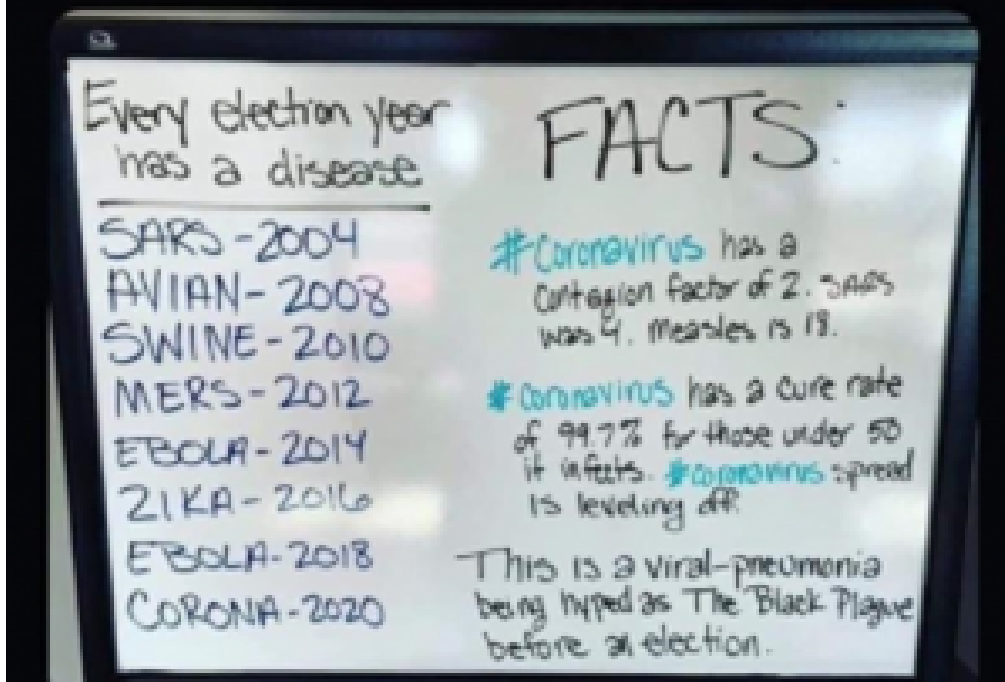 Every election year
has a disease
SARS - 2004
AVIAN - 2008
SWINE - 2010
MERS - 2012
EBOLA - 2014
ZIKA - 2016
EBOLA - 2018
CORONA - 2020
FACTS:
#Coronavirus has a
contagion factor of 2. SARS
was 4. measles is 18.
#Coronavirus has a cure rate
of 99.7% for those under 50
it infects. #coronavirus spread
is leveling off.
This is a viral-pneumonia
being hyped as The Black Plague
before an election.